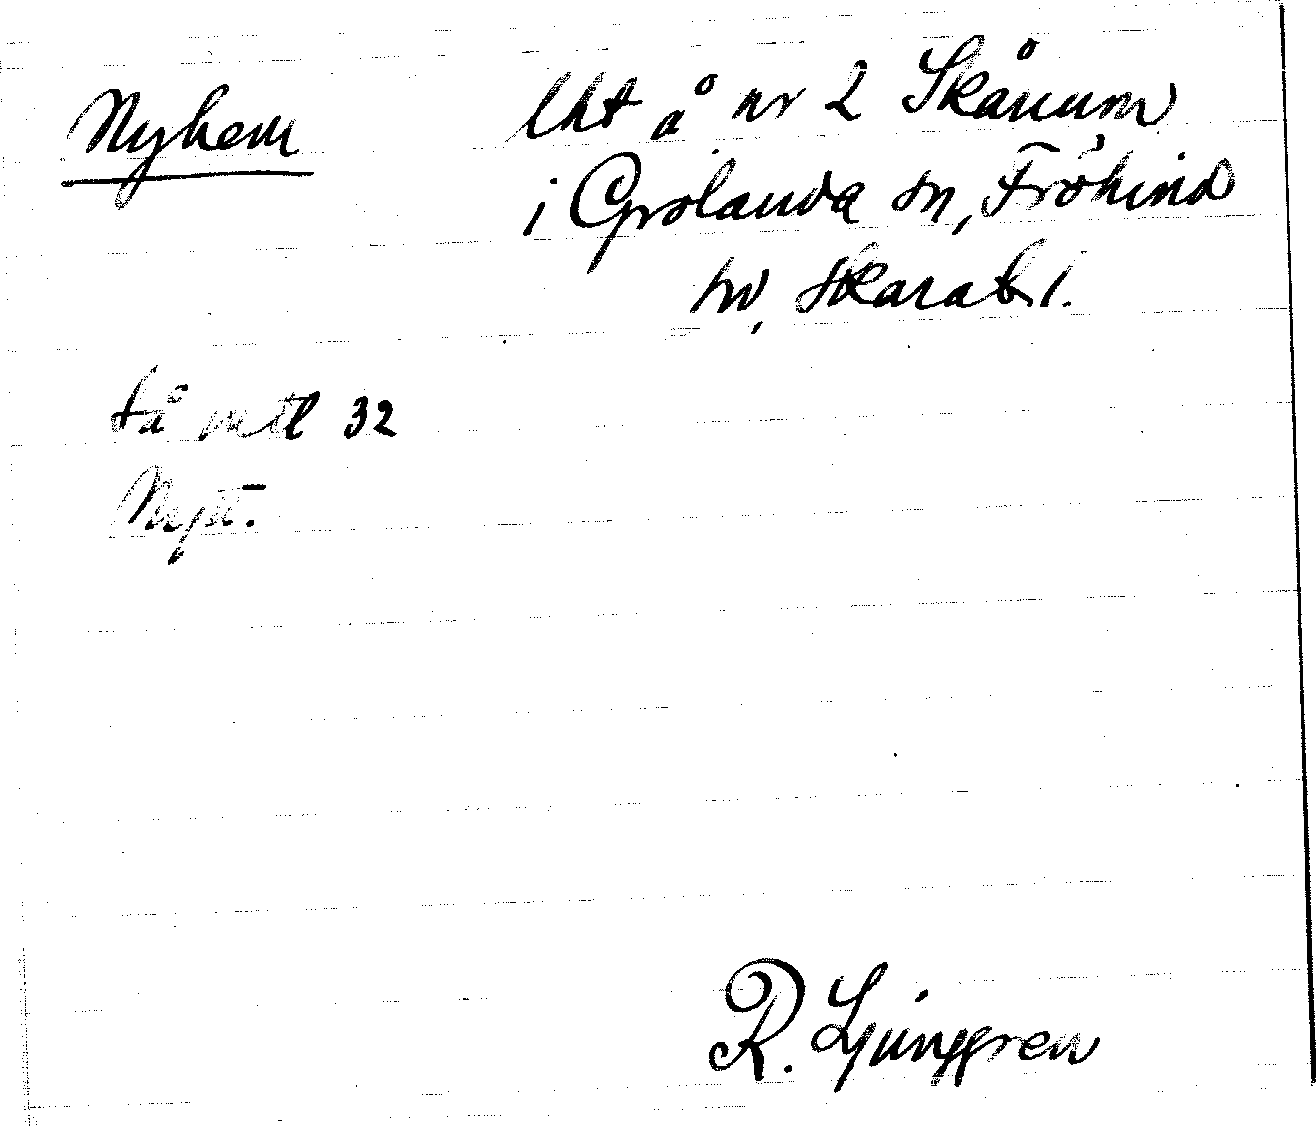 Nyhem
lht å nr 2 Skånum
i Grolanda sn, Frökind
hd, Skarab. l.
så mtl 32
Nytt.
R. Ljunggren